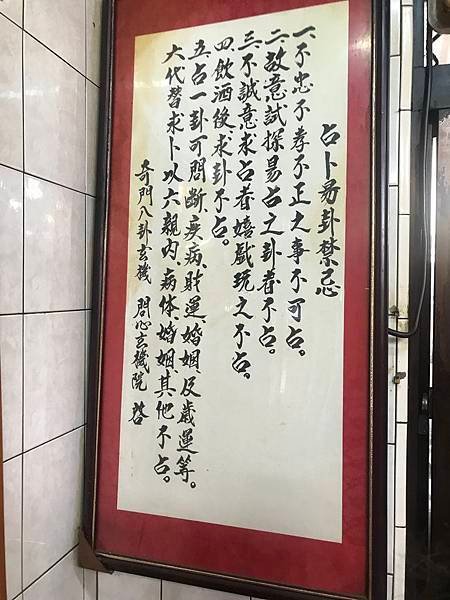 占卜易卦禁忌
一、不忠不孝不正之事不可占。
二、故意試探易占之卦者不占。
三、不誠意求占者嬉戲玩之不占。
四、飲酒後、求卦不占。
五、占一卦可問斷、疾病、財運、婚姻、及歲運等。
六、代替求卜、以六親內、病体、婚姻、其他不占。
奇門八卦玄機 問心玄機院 啓